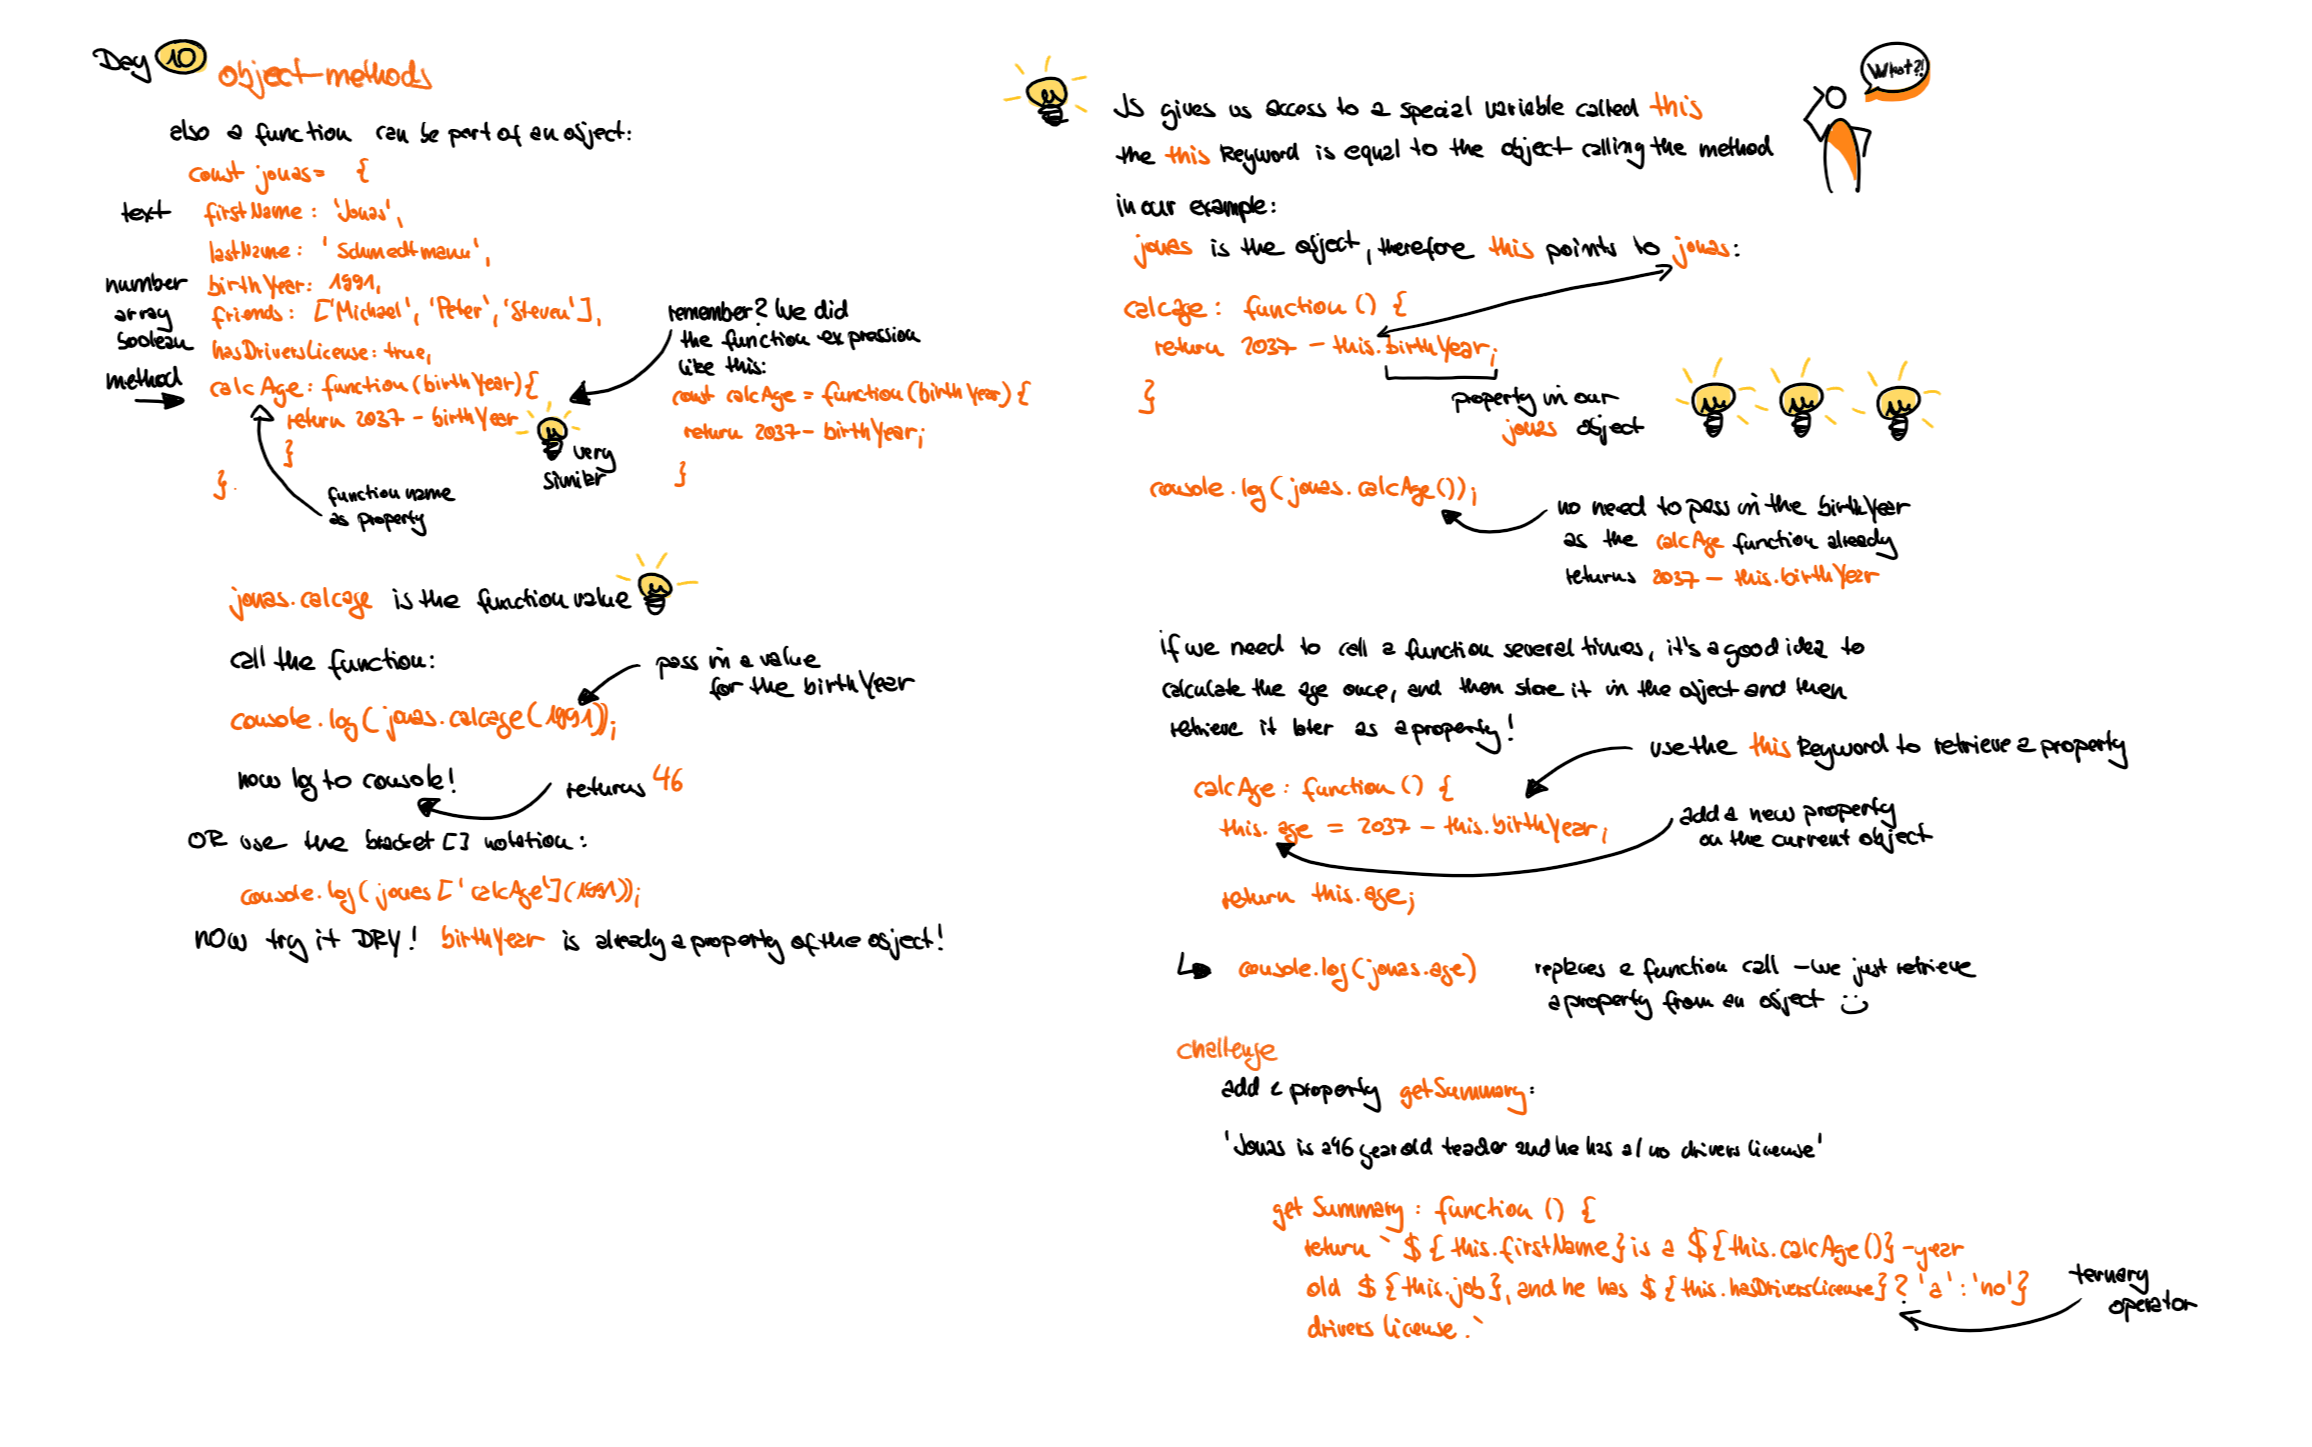 Day 10 object methods
also a function can be part of an object:
const jonas = {
text firstName : 'Jonas',
lastName : 'Schmedtmann',
number birthYear: 1991,
array friends: ['Michael', 'Peter', 'Steven'],
boolean hasDriversLicense: true,
method calcAge : function (birthYear) {
return 2037 - birthYear
}
}
function name
as property
remember? We did
the function expression
like this:
const calcAge = function (birthYear) {
return 2037 - birthYear;
}
very
similar
jonas.calcage is the function value
call the function:
pass in a value
for the birthYear
console.log(jonas.calcage(1991));
now log to console!
returns 46
OR use the bracket [] notation:
console.log(jonas['calcAge'](1991));
now try it DRY! birthYear is already a property of the object!
What?!
JS gives us access to a special variable called this
the this keyword is equal to the object calling the method
in our example:
jonas is the object, therefore this points to jonas:
calcage : function () {
return 2037 - this.birthYear;
}
property in our
jonas object
console.log(jonas.calcAge());
no need to pass in the birthYear
as the calcAge function already
returns 2037 - this.birthYear
if we need to call a function several times, it's a good idea to
calculate the age once, and then store it in the object and then
retrieve it later as a property!
use the this keyword to retrieve a property
calcAge : function () {
this.age = 2037 - this.birthYear;
add a new property
on the current object
return this.age;
console.log(jonas.age)
replaces a function call - we just retrieve
a property from an object
challenge
add a property getSummary:
'Jonas is a 46 year old teacher and he has a/no drivers license'
getSummary : function () {
return `${this.firstName} is a ${this.calcAge()}-year
old ${this.job}, and he has ${this.hasDriversLicense} ? 'a' : 'no'}
drivers license.`
ternary
operator